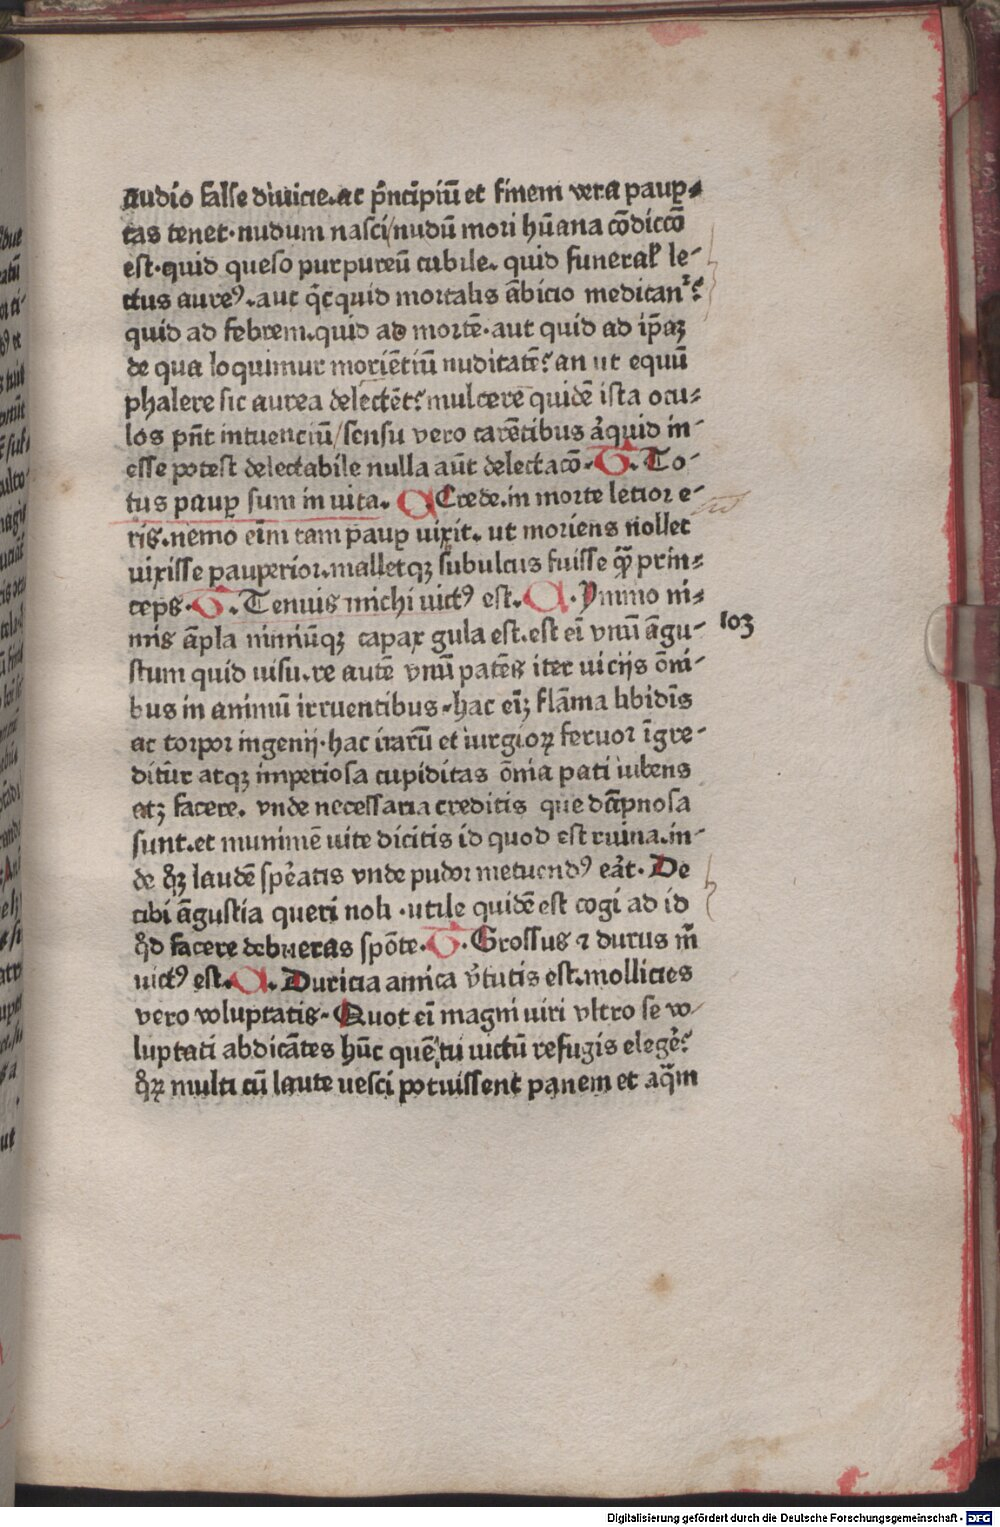 audio false diuicie.ac pͥncipiū et finem vera paup̱-
tas tenet.nudum nasci/nudū mori hūana cōdiccō
est.quid queso purpureū cubile. quid funeraƚ le-
ctus aureꝰ.aut q̄cquid mortalis ābicio medicanͬ?
quid ad febrem.quid ad mortē.aut quid ad ip̄aꝫ
de qua loquimur moriētiū nuditatē? an ut equū
phalere sic aurea delectēt? mulcere quidē ista ocu-
los pn̄t intuenciū/sensu vero carētibus aͥquid in-
esse potest delectabile nulla aūt delectacō. T. To-
tus paup̱ sum in uita. A. Crede.in morte lecior e-
ris.nemo eīm tam paup̱ uixit. ut moriens nollet
uixisse pauperior.malletqꝫ subulcus fuisse qͣꝫ prin-
ceps. T. Tenuis michi uictꝰ est. A. Ymmo ni-
mis āpla nimiūqꝫ capax gula est.est eī vnū āgu-
stum quid uisu.re autē vnū patēs iter uicijs ōni-
bus in animū irruentibus.hac eīꝫ flāma libidīs
ac torpor ingenij.hac irarū et iurgioꝝ feruor īgre-
ditūr atqꝫ imperiosa cupiditas ōnia pati iubens
atꝫ facere. vnde necessaria creditis que dāpnosa
sunt.et munimē uite dicitis id quod est ruina.in-
de qͦꝫ laudē spēatis vnde pudor metuendꝰ eāt. De
tibi āgustia queri noli .utile quidē est cogi ad id
qͦd facere debueras spōte. T. Grossus ⁊ durus m̄
uictꝰ est. A. Duricia amica v̄tutis est.mollicies
vero voluptatis. Quot eī magni uiri vltro se vo-
luptati abdicātes hūc quē tu uictū refugis elegēͬ?
qͦꝝ multi cū laute uesci potuissent panem et aqͣm
103
Digitalisierung gefördert durch die Deutsche Forschungsgemeinschaft - DFG